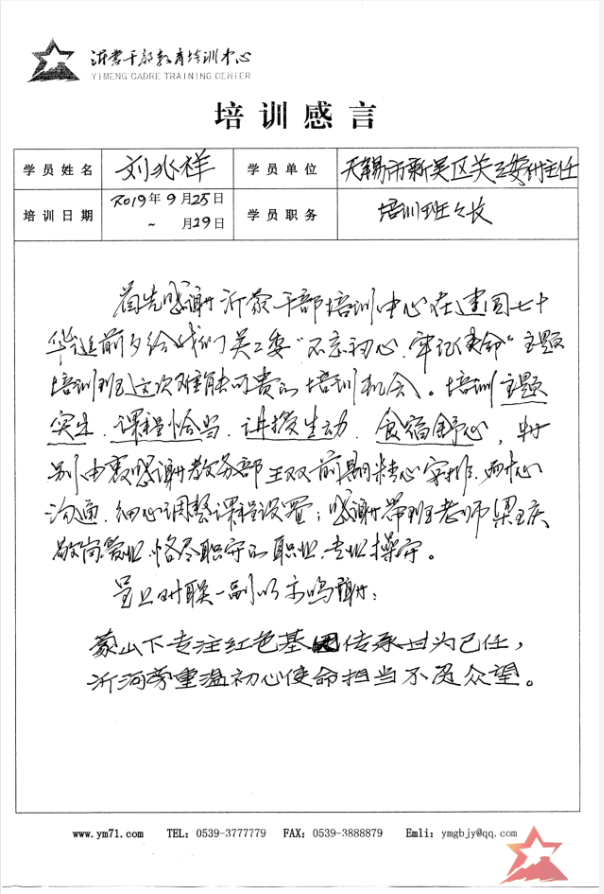 沂蒙干部教育培训中心
YIMENG CADRE TRAINING CENTER
培训感言
学员姓名 刘兆祥 学员单位 无锡市新吴区关工委副主任
培训日期 2019年9月25日 ~ 月29日 学员职务 培训班班长
首先感谢沂蒙干部培训中心在建国七十
华诞前夕给我们关工委“不忘初心、牢记使命”主题
培训班这次难能可贵的培训机会。培训主题
突出、课程恰当、讲授生动、食宿舒心,特
别由衷感谢教务部王双前期精心安排、耐心
沟通、细心调整课程设置;感谢带班老师梁
敬岗爱业、恪尽职守的职业、专业操守。
呈上对联一副以示鸣谢:
蒙山下专注红色基因传承甘为己任,
沂河旁重温初心使命担当不负众望。
www.ym71.com TEL: 0539-3777779 FAX: 0539-3888879 Emli: ymgbjy@qq.com